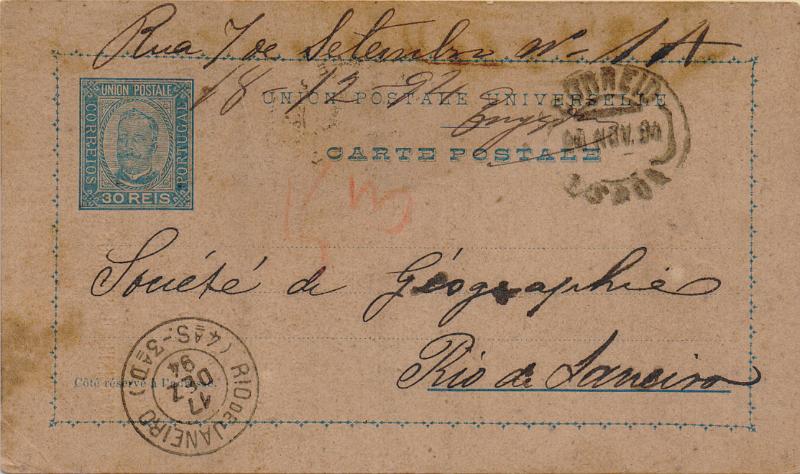 Rua 7 de Setembro Nº 1A
18-12-94
UNION POSTALE UNIVERSELLE
CARTE POSTALE
UNION POSTALE
CORREIOS
PORTUGAL
30 REIS
CORREIO
NOV. 94
LISBOA
Société de Géographie
Rio de Janeiro
Côté réservé à l'adresse.
RIO DE JANEIRO
(4ªS.-3ªD)
17
DEZ
94